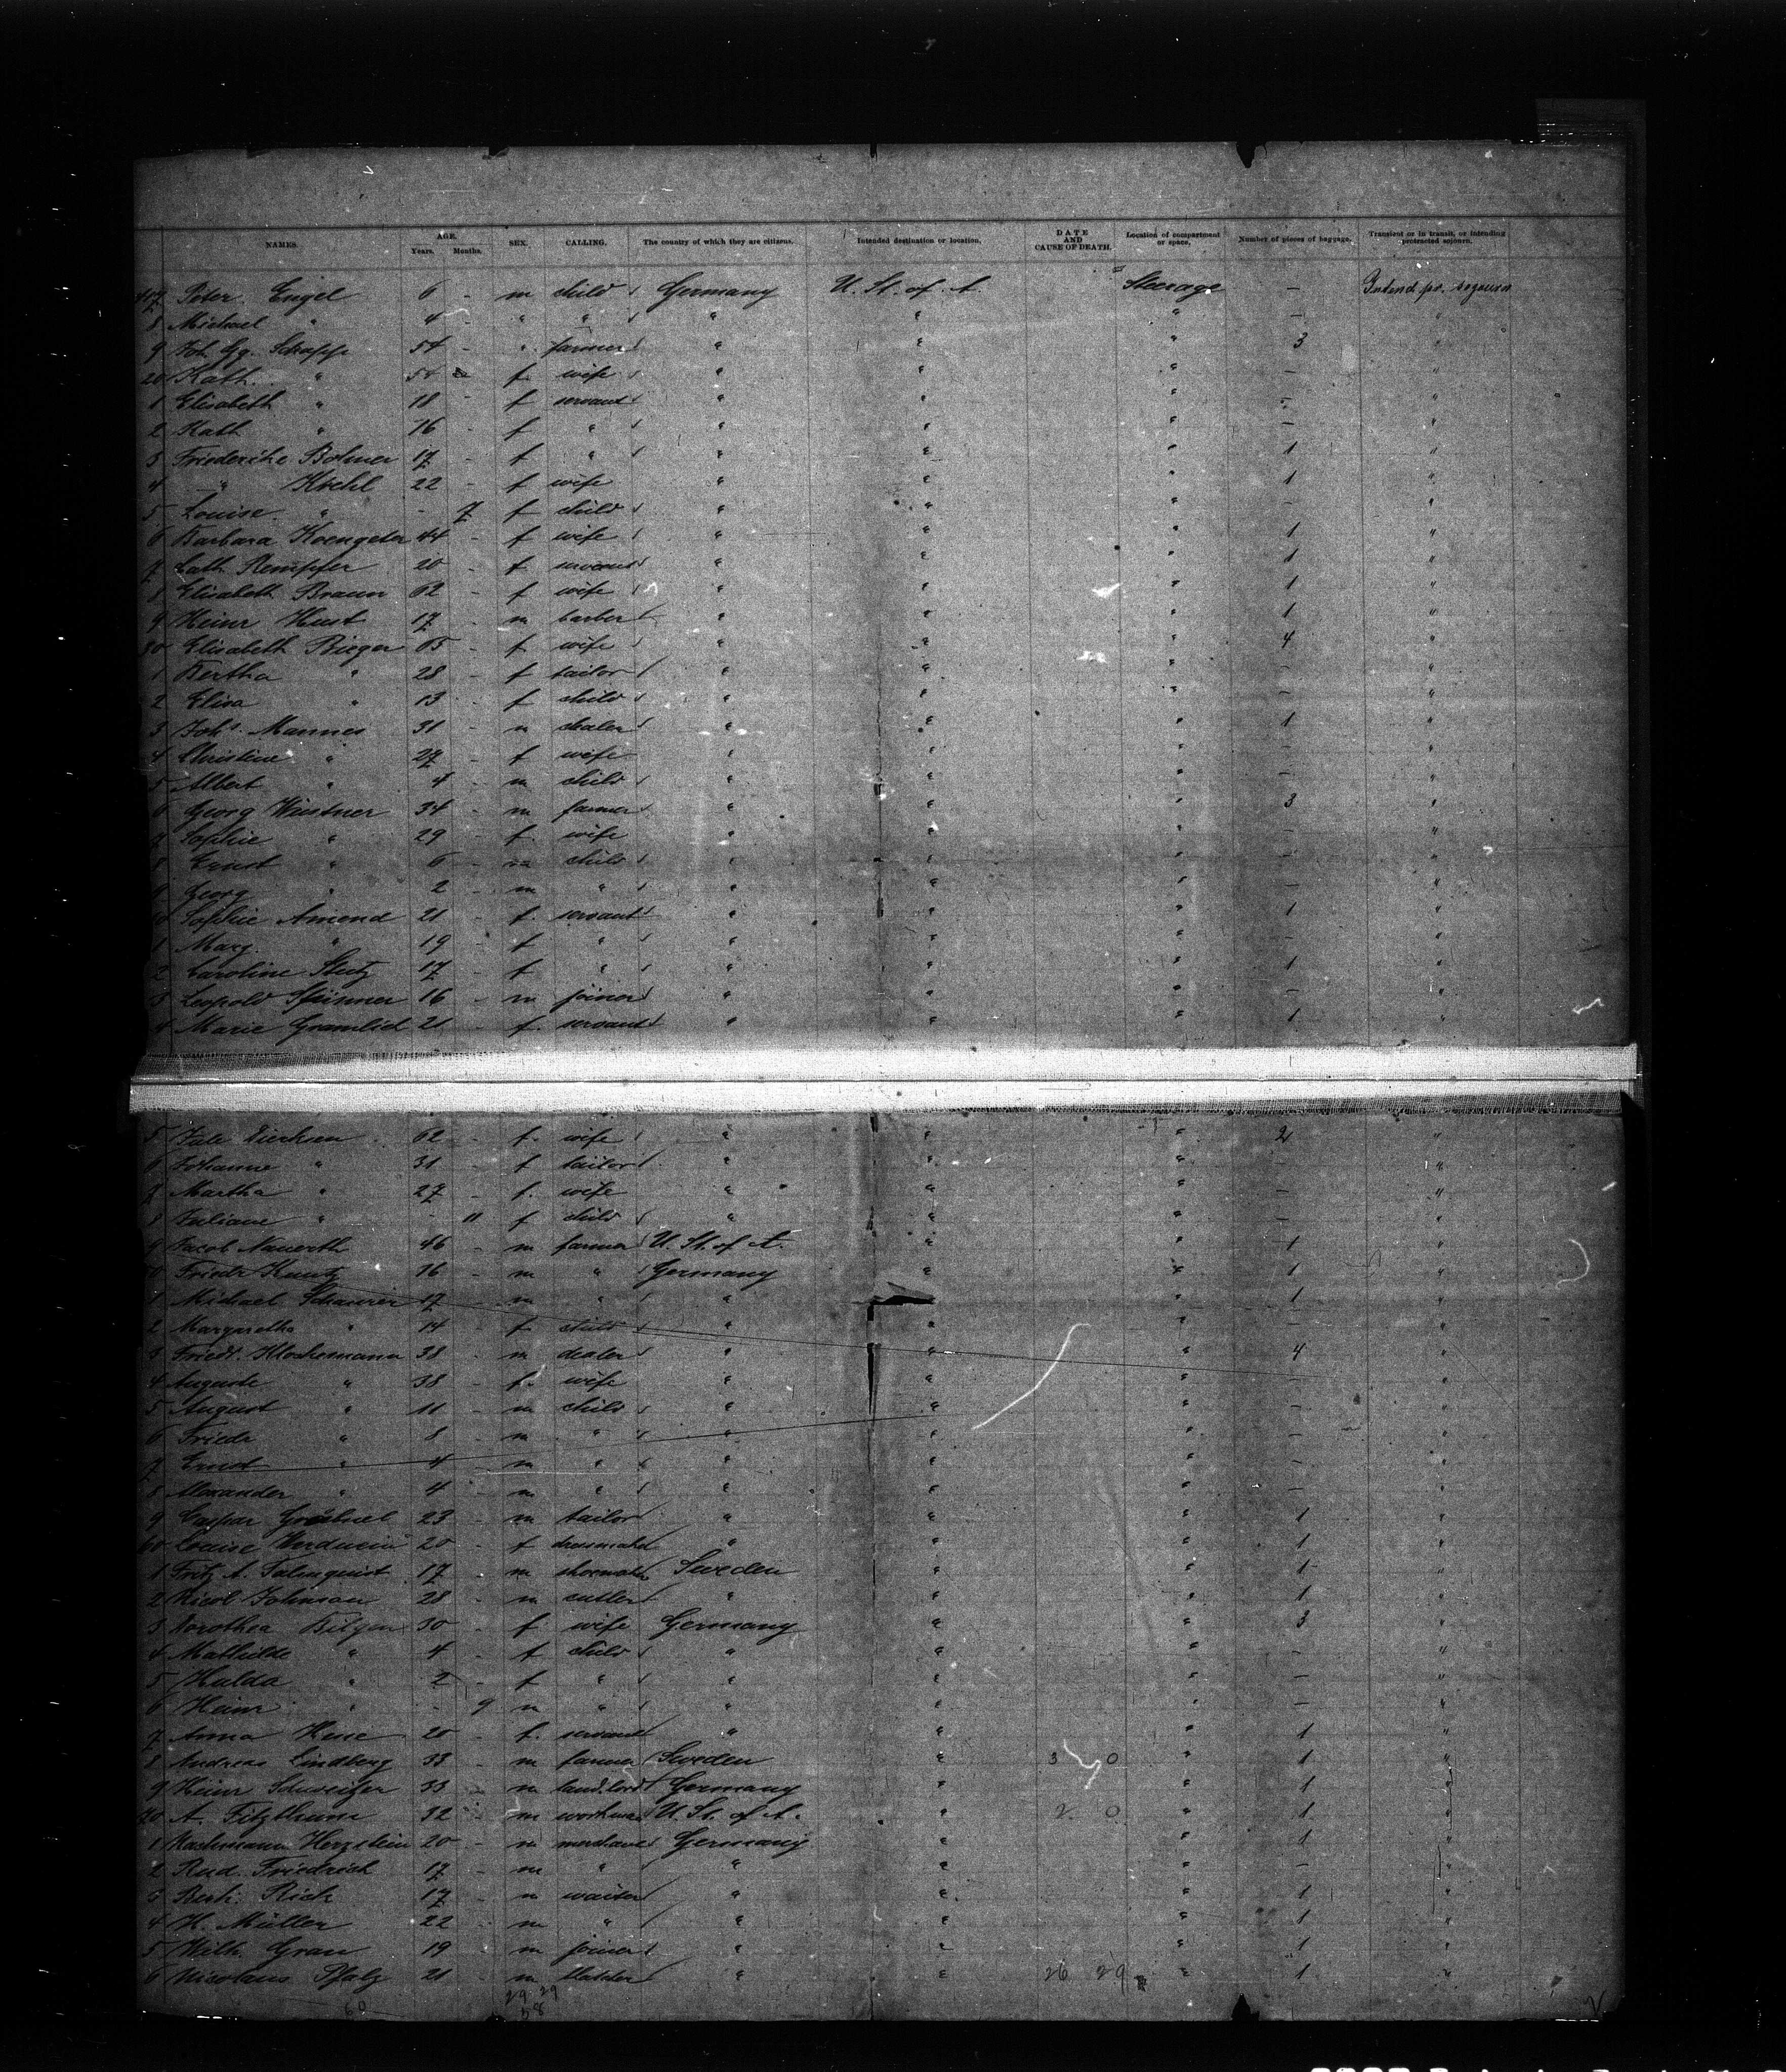 NAMES. AGE. Years. Months. SEX. CALLING. The country of which they are citizens. Intended destination or location. DATE AND CAUSE OF DEATH. Location of compartment or space. Number of pieces of baggage. Transient or in transit, or intending protracted sojourn.
417 Peter Engel 6 - m child Germany U. St. of A. Steerage - Intend pr. sojourn
8 Michael " 4 - " " " " " - "
9 Joh. Gg. Schaffe 54 - " farmer " " " 3 "
20 Kath. " 54 f. wife " " " - "
1 Elisabeth " 18 - f servant " " " - "
2 Kath " 16 - f " " " " - "
3 Friederike Bolmer 17 - f " " " " 1 "
4 " Krehl 22 - f wife " " " 1 "
5 Louise " - 7 f child " " " - "
6 Barbara Hoengeter 44 - f wife " " " 1 "
7 Cath. Rempfer 20 - f servant " " " 1 "
8 Elisabeth Braun 62 - f wife " " " 1 "
9 Heinr Hust 17 - m barber " " " 1 "
30 Elisabeth Rieger 65 - f wife " " " 4 "
1 Bertha " 28 - f tailor " " " - "
2 Elisa " 13 - f child " " " - "
3 Johs. Mannes 31 - m dealer " " " 1 "
4 Christine " 27 - f wife " " " - "
5 Albert " 4 - m child " " " - "
6 Georg Wüstner 34 - m farmer " " " 3 "
7 Sophie " 29 - f. wife " " " - "
8 Ernst " 6 - m child " " " - "
9 Georg " 2 - m " " " " - "
40 Sophie Amend 21 - f. servant " " " 1 "
1 Mary " 19 - f " " " " - "
2 Caroline Stutz 17 - f " " " " 1 "
3 Leopold Stürmer 16 - m joiner " " " - "
4 Marie Gramlich 21 - f. servant " " " 1 "
5 Dierksen 62 - f. wife " " " 2 "
6 Johanne " 31 - f tailor " " " - "
7 Martha " 27 - f. wife " " " - "
8 Juliane " - 11 f child " " " - "
9 Jacob Nauerth 46 - m farmer U. St. of A. " " 1 "
50 Friedr Kuntz 16 - m " Germany " " 1 "
1 Michael Schaurer 17 - m " " " " 1 "
2 Margaretha " 14 - f child " " " - "
3 Friedr. Klockemann 38 - m dealer " " " 4 "
4 Auguste " 38 - f. wife " " " - "
5 August " 11 - m child " " " - "
6 Friedr " 8 - m " " " " - "
7 Ernst " 4 - m " " " " - "
8 Alexander " 4 - m " " " " - "
9 Caspar 23 - m tailor " " " 1 "
60 Louise 20 - f dressmaker " " " 1 "
1 Fritz A. Palmquist 17 - m shoemaker Sweden " " 1 "
2 Nicol Johnson 28 - m cutler " " " 1 "
3 Dorothea Bilger 30 - f wife Germany " " 3 "
4 Mathilde " 4 - f child " " " - "
5 Hulda " 2 f " " " " - "
6 Heinr " - 9 m " " " " - "
7 Anna 20 - f. servant " " " 1 "
8 Andreas Lindberg 33 - m farmer Sweden " 3 0 " 1 "
9 Heinr Schweitzer 33 - m landlord Germany " " 1 "
70 A. Fitzthum 32 - m workman U. St. of A. " 2 0 " 1 "
1 Nachmann Herzstein 20 - m merchant Germany " " 1 "
2 Rud. Friedrich 17 - m " " " " - "
3 Berh. Rich 17 - m waiter " " " 1 "
4 H. Müller 22 - m " " " " 1 "
5 Wilh. Grau 19 - m joiner " " " 1 "
6 Nicolaus Pfalz 21 - m " " 26 29 " 1 "
29 29
60 58